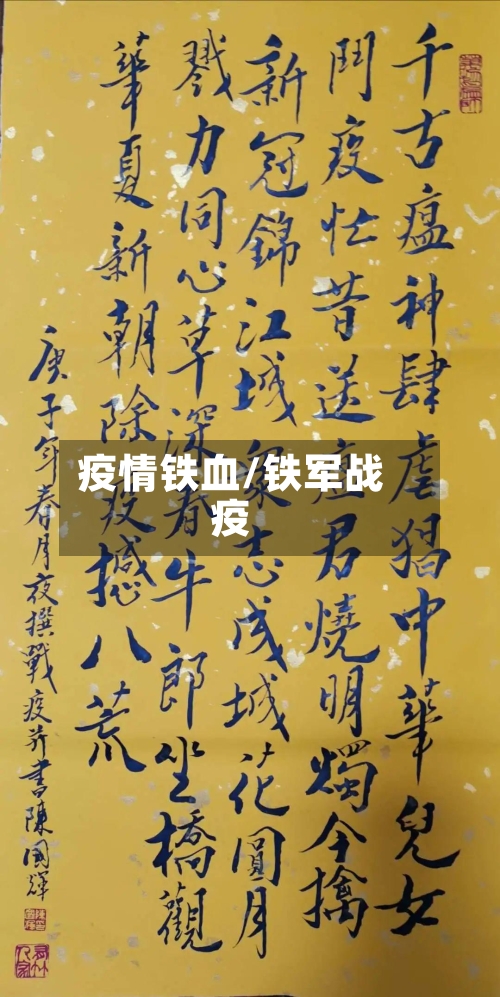 千古瘟神肆虐猖中華兒女
鬥疫忙昔送瘟君燒明燭今擒
新冠錦江城衆志成城花圓月
戮力同心草深看牛郎坐橋觀
華夏新朝除疫撼八荒
庚子年春月夜撰戰疫并書陳國輝
疫情铁血/铁军战
疫